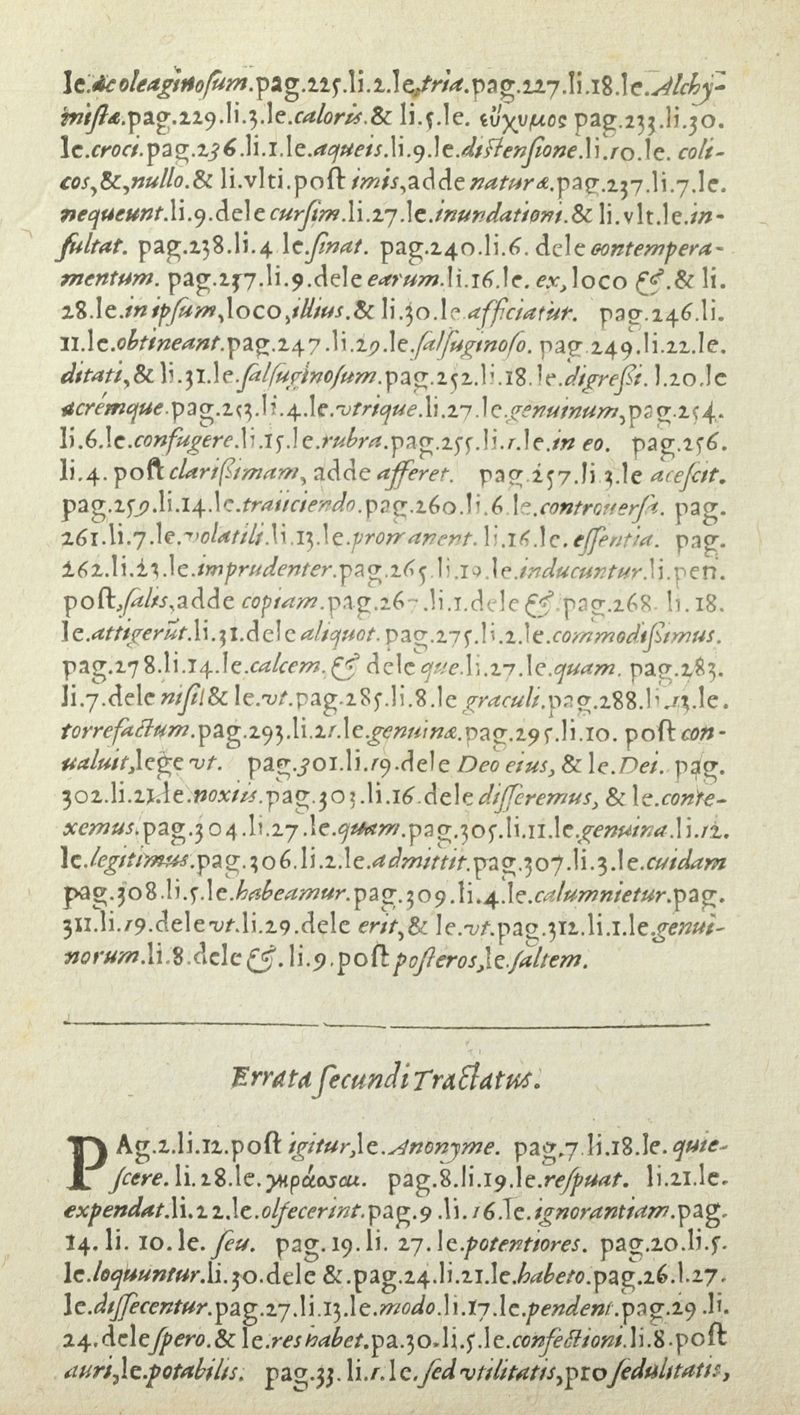 le.ac oleaginosum.pag.225.li.2.le.tria.pag.227.li.18.le.Alchy-
mistæ.pag.229.li.3.le.caloris.& li.5.le. εὔχυμος pag.233.li.30.
le.croci.pag.236.li.1.le.aqueis.li.9.le.distensione.li.10.le. coli-
cos,&,nullo.& li.vlti.post imis,adde naturæ.pag.237.li.7.le.
nequeunt.li.9.dele cursim.li.27.le.inundationi.& li.vlt.le.in-
sultat. pag.238.li.4 le.sinat. pag.240.li.6. dele contempera-
mentum. pag.257.li.9.dele earum.li.16.le. ex, loco &.& li.
28.le.in ipsum,loco,illius.& li.30.le afficiatur. pag.246.li.
11.le.obtineant.pag.247.li.29.le.salsuginoso. pag.249.li.22.le.
ditati,& li.31.le.salsuginosum.pag.252.li.18.le.digressi. l.20.le
acremque.pag.253.li.4.le.vtrique.li.27.le.genuinum,pag.254.
li.6.le.confugere.li.15.le.rubra.pag.255.li.1.le.in eo. pag.256.
li.4. post clarissimam, adde afferet. pag.257.li 3.le acescit.
pag.259.li.14.le.traiiciendo.pag.260.li.6.le.controuersa. pag.
261.li.7.le.volatili.li.13.le.promanent. li.16.le.essentia. pag.
262.li.23.le.imprudenter.pag.265.li.19.le.inducuntur.li.pen.
post,salis,adde copiam.pag.267.li.1.dele &.pag.268. li.18.
le.attigerūt.li.31.dele aliquot. pag.275.li.2.le.commodissimus.
pag.278.li.14.le.calcem, & dele que.li.27.le.quam. pag.283.
li.7.dele nisi!& le.vt.pag.285.li.8.le graculi.pag.288.li.13.le.
torrefactum.pag.293.li.21.le.genuinæ.pag.295.li.10. post con-
ualuit,lege vt. pag.301.li.19.dele Deo eius, & le.Dei. pag.
302.li.21.le.noxiis.pag.303.li.16.dele differemus, & le.conte-
xemus.pag.304.li.27.le.quam.pag.305.li.11.le.genuina.li.12.
le.legitimus.pag.306.li.2.le.admittit.pag.307.li.3.le.cuidam
pag.308.li.5.le.habeamur.pag.309.li.4.le.calumnietur.pag.
311.li.19.dele vt.li.29.dele erit,& le.vt.pag.312.li.1.le.genui-
norum.li.8.dele &. li.9.post posteros,le.saltem.
Errata secundi Tractatus.
PAg.2.li.12.post igitur,le.Anonyme. pag.7 li.18.le. quie-
scere. li.28.le. γηράοσαι. pag.8.li.19.le.respuat. li.21.le.
expendat.li.22.le.olfecerint.pag.9.li.16.le.ignorantiam.pag.
14. li. 10.le. seu. pag.19.li. 27.le.potentiores. pag.20.li.5.
le.loquuntur.li.30.dele &.pag.24.li.21.le.habeto.pag.26.l.27.
le.dissecentur.pag.27.li.13.le.modo.li.17.le.pendent.pag.29.li.
24.dele spero.& le.res habet.pa.30.li.5.le.confectioni.li.8.post
auri,le.potabilis. pag.33. li.1.le.sed vtilitatis,pro sedulitatis,